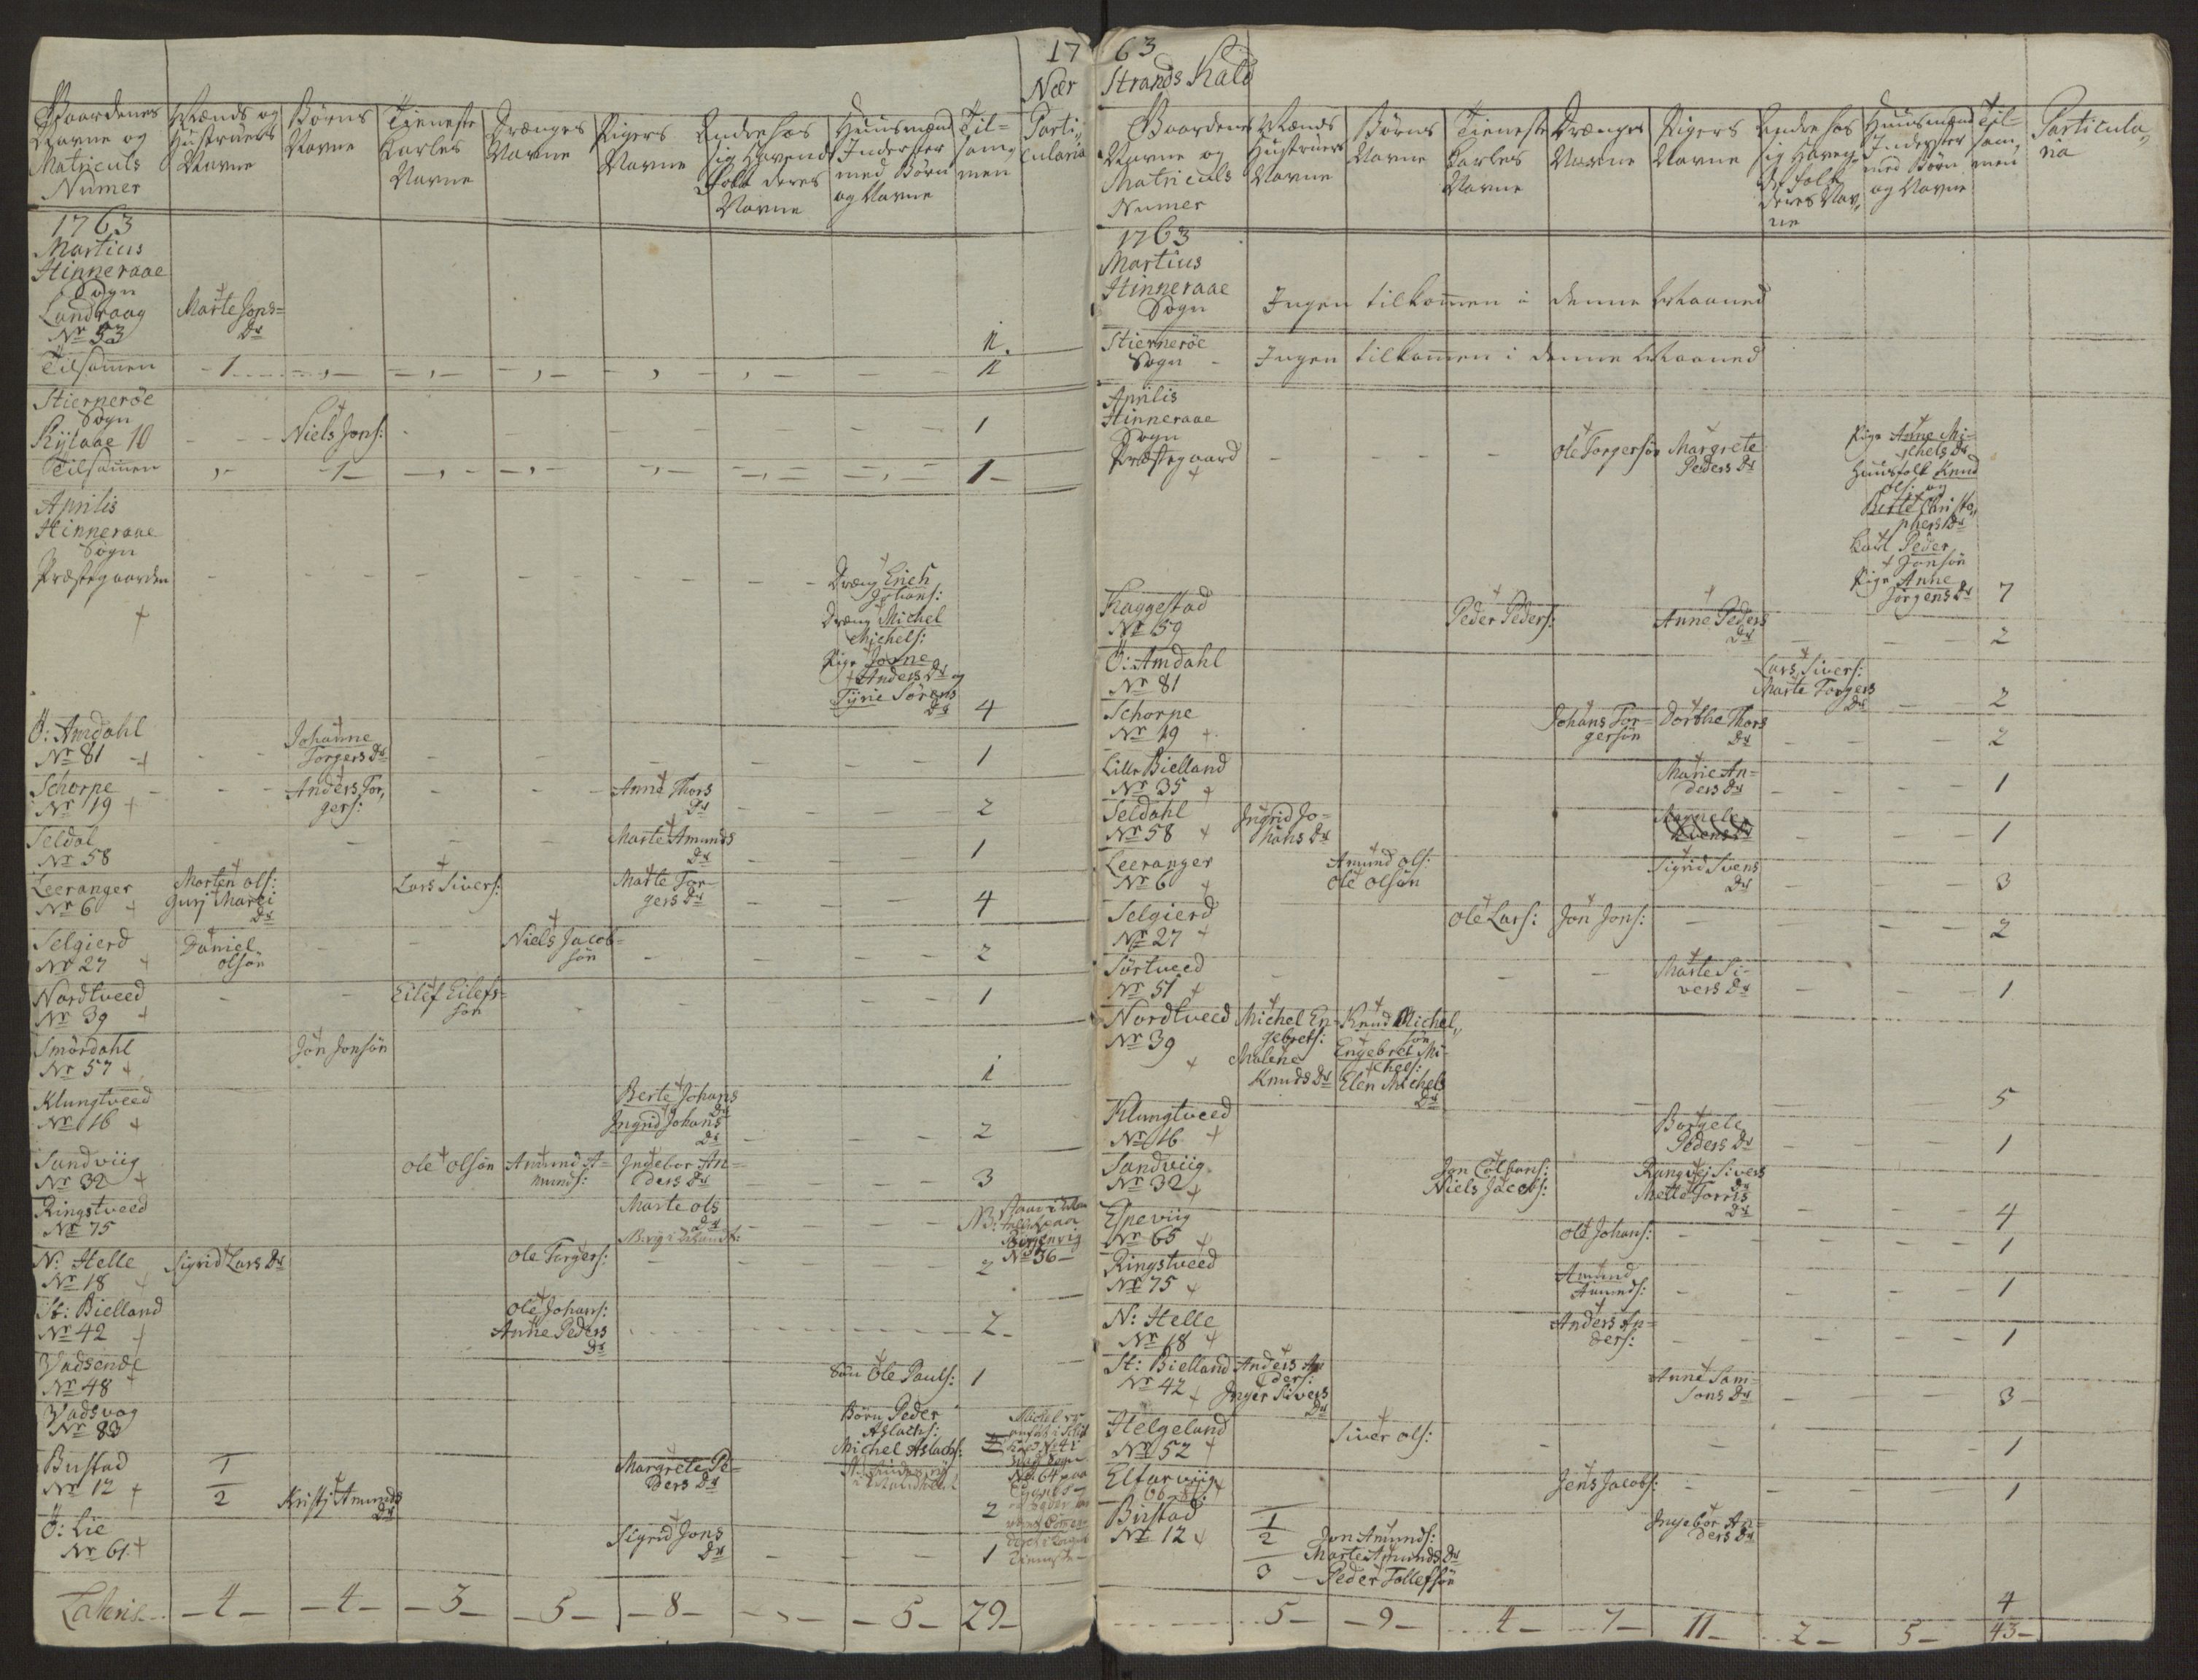 17
Nær
Gaardenes
Navne og
Matriculs
Numer
Mænds og
Hustruers
Navne
Børns
Navne
Tieneste
Karles
Navne
Drænges
Navne
Pigers
Navne
Andre hos
sig Havende
Folk deres
Navne
Huusmænd
Inderster
med Børn
og Navne
Til=
sam,
men
Parti,,
cularia
1763
Martius
Hinneraae
Sogn
Landraag
Nr 53
Marte Jons=
Dr
1.
Tilsammen - 1 - 1
Stiernerøe
Sogn
Rylaae 10 Niels Jons: 1
Tilsammen - 1 - 1 -
Aprilis
Hinneraae
Sogn
Præstegaarden
Dræng Erich
Johans:
Dræng Michel
Michels:
Pige Jorne
Anders Dr og
Tyrie Sørens
Dr 4
Ö: Amdahl
Nr 81
Johanne
Torgers Dr
1
Schorpe
Nr 19
Anders Tor,
gers:
Anne Thors
Dr
2
Seldal
Nr 58
Marte Amunds
Dr
1
Leeranger
Nr 6
Morten Ols:
Gurj Marci
Dr
Lars Sivers:
Marte Tor-
gers Dr
4
Selgierd
Nr 27
Daniel
Olsøn
Niels Jacob=
søn
2
Nordtveed
Nr 39
Eilef Eilefs=
søn
1
Smördahl
Nr 57
Jon Jonsøn
1
Klungtveed
Nr 16
Berte Johans
Dr
Ingrid Johans
Dr
2
Sandviig
Nr 32
Ole Olsøn
Amund A=
munds:
Ingebor An=
ders Dr
3
Ringstveed
Nr 75
Marte Ols
Dr
NB:
Nr 36 -
N: Helle
Nr 18
Sigrid Lars Dr
Ole Torgers:
2
St: Bielland
Nr 42
Ole Johans:
Anne Peders
Dr
2 -
Vadsende
Nr 48
Søn Ole Pauls:
1
Vadsvog
Nr 83
Børn Peder
Aslachs:
Michel Aslachs:
Bustad
Nr 12
1
2
Kristj Amunds
Dr
Margrete Pe=
ders Dr
2
Ö: Lie
Nr 61
Sigrid Jons
Dr
1
Lateris - 4 - - 4 - - 3 - - 5 - - 8 - - , - - 5 - 29 -
63
Strands Kald
Gaardenes
Navne og
Matriculs
Numer
Mænds
Hustruers
Navne
Børns
Navne
Tieneste
Karles
Navne
Drænges
Navne
Pigers
Navne
Andre hos
sig Haven-
de Folk
deres Nav,
ne
Huusmænd
Inderster
med Børn
og Navne
Til=
sam,
men
Particula,,
ria
1763
Martius
Hinneraae
Sogn
Ingen tilkommen i denne Maaned
Stiernerøe
Sogn - Ingen tilkommen i denne Maaned
Aprilis
Hinneraae
Sogn
Præstegaard
Ole Torgersøn
Margrete
Peders Dr
Pige Anne Mi=
chels Dr
Huusfolk Knud
Ols: og
Berte Christo,,
phers Dr
Karl Peder
Jonsøn
Pige Anne
Jorgens Dr
7
Haggestad
Nr 59
Peder Peders:
Anne Peders
Dr
2
Ö: Amdahl
Nr 81
Lars Sivers:
Marte Torgers
Dr
2
Schorpe
Nr 19
Johans Tor=
gersøn
Dorthe Thors
Dr
2
Lille Bielland
Nr 35
Marie An=
ders Dr
1
Seldahl
Nr 58
Ingrid Jo=
hans Dr
1
Leeranger
Nr 6
Amund Ols:
Ole Olsøn
Sigrid Svens
Dr
3
Selgierd
Nr 27
Ole Lars:
Jon Jons:
2
Sørtveed
Nr 51
Marte Si-
vers Dr
1
Nordtveed
Nr 39
Michel En-
gebrets:
Malene
Knuds Dr
Knud Michel,,
søn
Engebret Mi-
chels:
Elen Michels
Dr
5
Klungtveed
Nr 16
Borgele
Peders Dr
1
Sandviig
Nr 32
Jon Colbens:
Niels Jacobs:
Rangvej Sivers
Dr
Mette Torris
Dr
4
Espeviig
Nr 65
Ole Johans:
1
Ringstveed
Nr 75
Amund
Amunds:
1
N: Helle
Nr 18
Anders An=
ders:
1
St: Bielland
Nr 42
Anders An
ders:
Inger Sivers
Dr
Anne Sam=
sons Dr
3 -
Helgeland
Nr 52
Siver Ols:
1
Elfarviig
66
Jens Jacobs:
1
Bustad
Nr 12
1
2
3
Jon Amunds:
Marte Amunds Dr
Peder Tollefsøn
Ingebor An=
ders Dr
4
5 - - 9 - 4 - 7 - 11 - 2 - 5 - 43 -